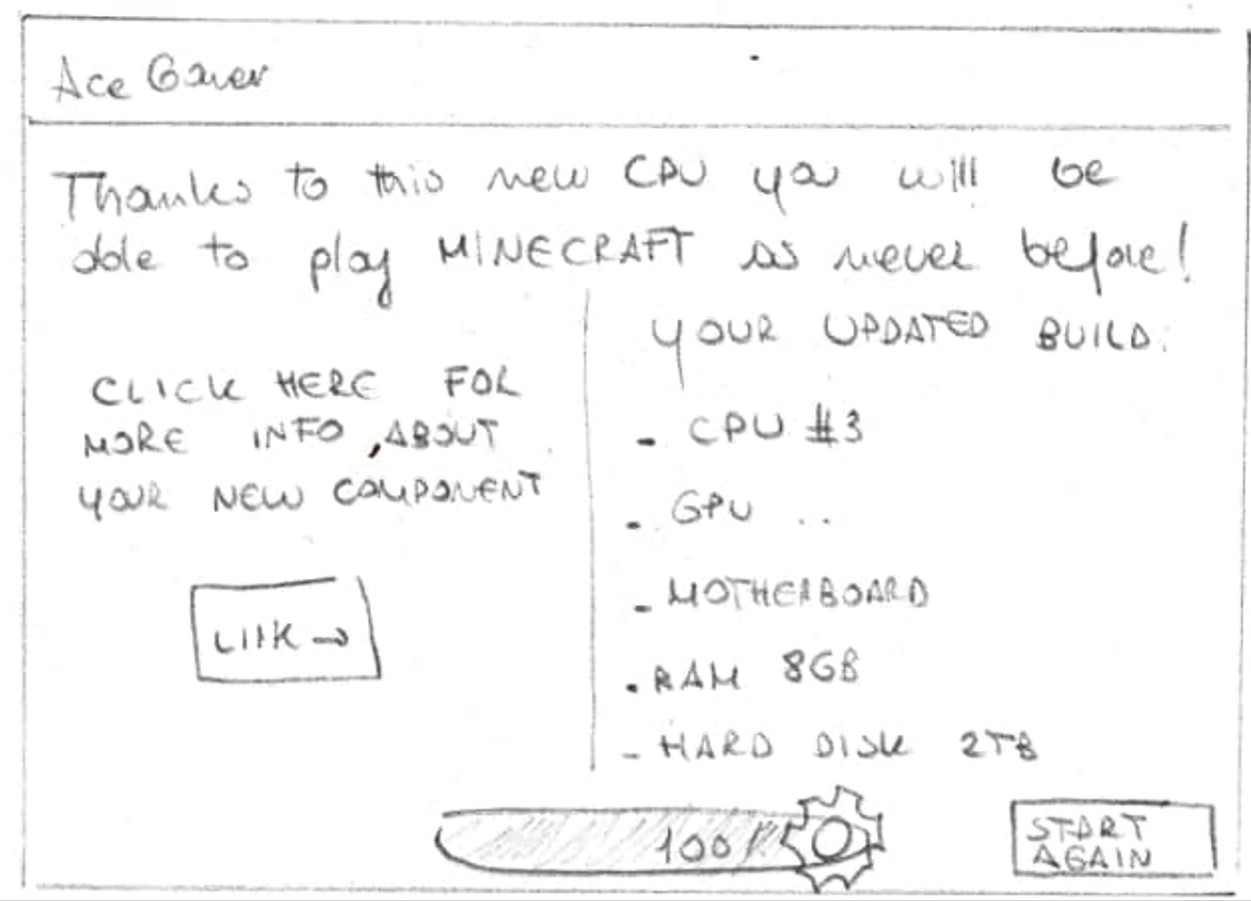 Ace Gamer
Thanks to this new CPU you will be
able to play MINECRAFT as never before!
CLICK HERE FOR
MORE INFO ABOUT
YOUR NEW COMPONENT
LINK →
YOUR UPDATED BUILD:
- CPU #3
- GPU ..
- MOTHERBOARD
- RAM 8GB
- HARD DISK 2TB
100%
START
AGAIN